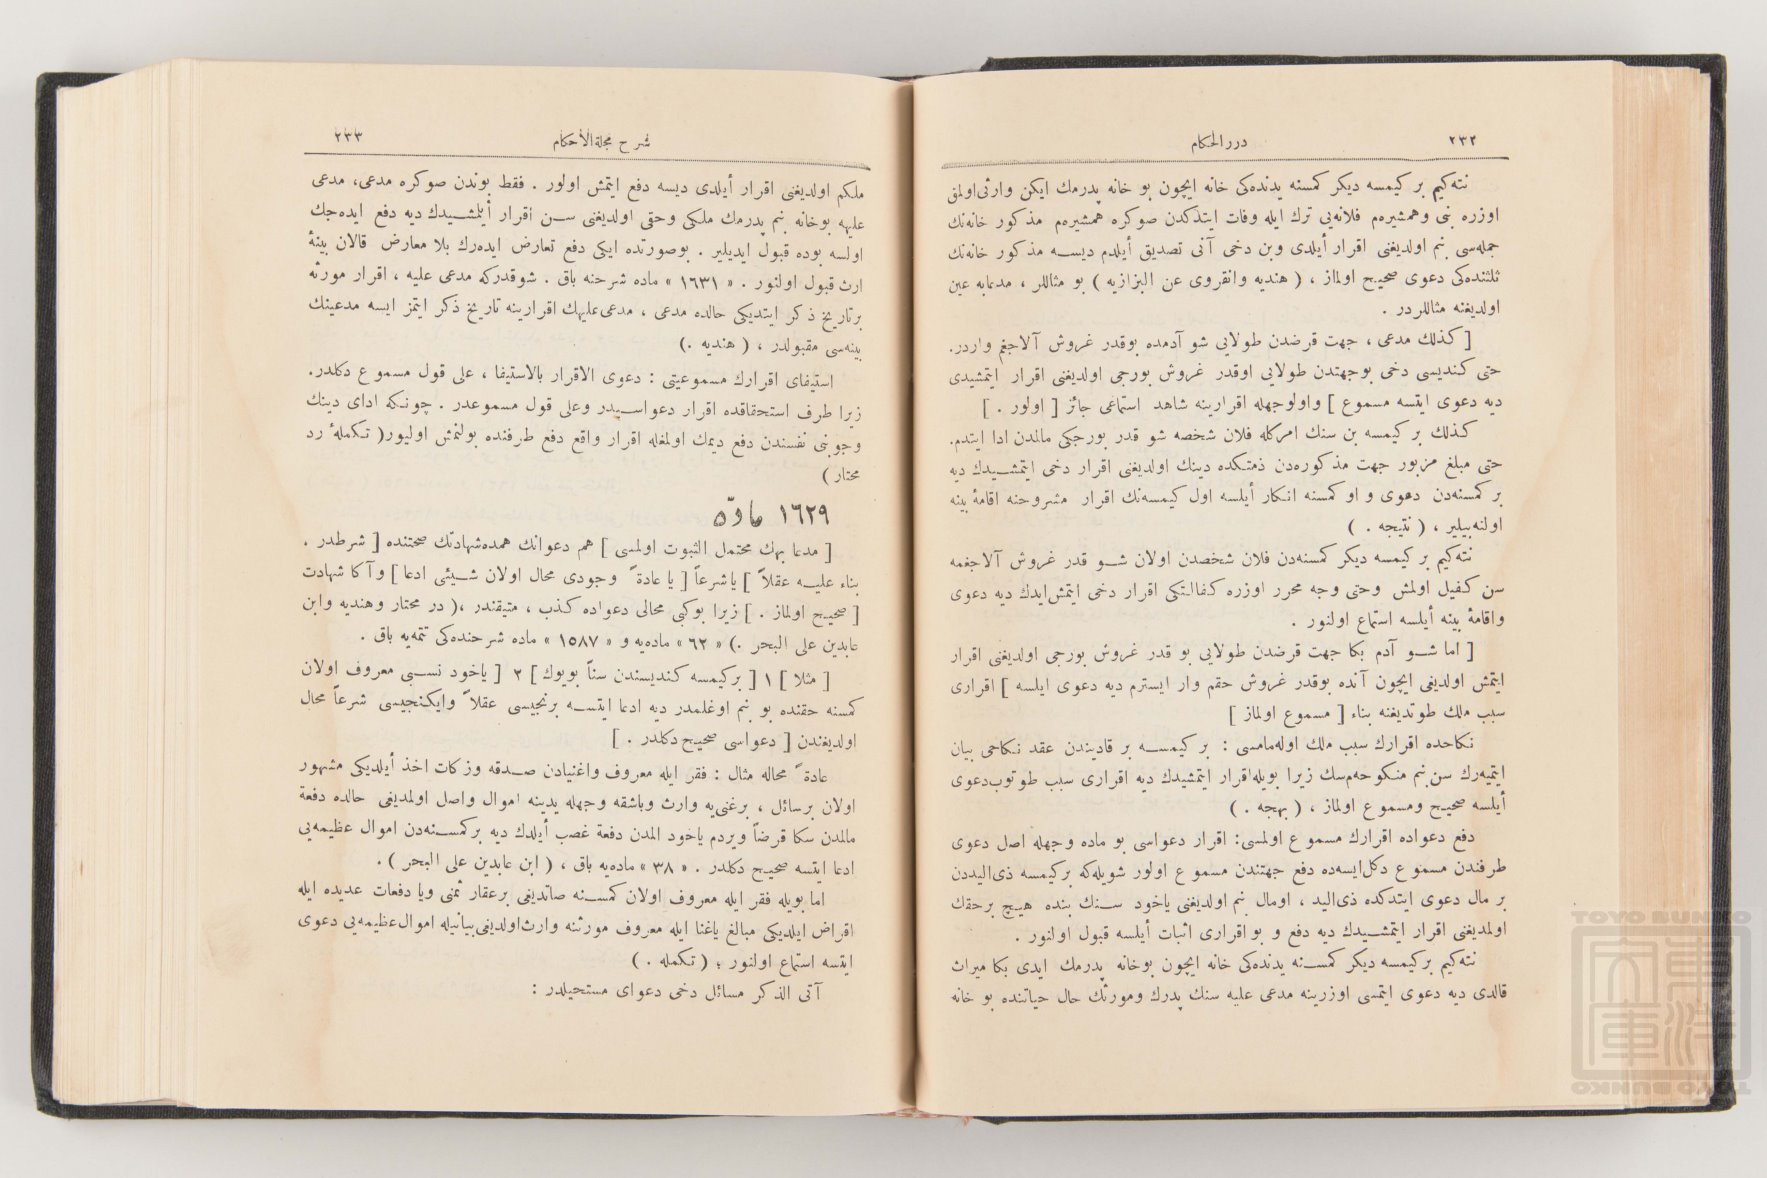 ٢٣٢
درر الحكام
نته‌كيم بر كيمسه ديكر كمسنه يدنده‌كى خانه ايچون بو خانه پدرمك ايكن وارثى‌اولمق
اوزره بنى وهمشيره‌م فلانه‌يى ترك ايله وفات ايتدكدن صوكره همشيره‌م مذكور خانه‌نك
جمله‌سى بنم اولديغنى اقرار أيلدى وبن دخى آنى تصديق أيلدم ديسه مذكور خانه‌نك
ثلثنده‌كى دعوى صحيح اولماز ، ( هنديه وانقروى عن البزازيه ) بو مثاللر ، مدعابه عين
اولديغنه مثاللردر .
[ كذلك مدعى ، جهت قرضدن طولايى شو آدمده بوقدر غروش آلاجغم واردر.
حتى كنديسى دخى بوجهتدن طولايى اوقدر غروش بورجى اولديغنى اقرار ايتمشيدى
ديه دعوى ايتسه مسموع ] واولوجهله اقرارينه شاهد استماعى جائز [ اولور . ]
كذلك بر كيمسه بن سنك امركله فلان شخصه شو قدر بورجكى مالمدن ادا ايتدم.
حتى مبلغ مزبور جهت مذكوره‌دن ذمتكده دينك اولديغنى اقرار دخى ايتمشيدك ديه
بر كمسنه‌دن دعوى و او كمسنه انكار أيلسه اول كيمسه‌نك اقرار مشروحنه اقامهٔ بينه
اولنه‌بيلير ، ( نتيجه . )
نته‌كيم بر كيمسه ديكر كمسنه‌دن فلان شخصدن اولان شو قدر غروش آلاجغمه
سن كفيل اولمش وحتى وجه محرر اوزره كفالتكى اقرار دخى ايتمش‌ايدك ديه دعوى
واقامهٔ بينه أيلسه استماع اولنور .
[ اما شو آدم بكا جهت قرضدن طولايى بو قدر غروش بورجى اولديغنى اقرار
ايتمش اولديغى ايچون آنده بوقدر غروش حقم وار ايسترم ديه دعوى ايلسه ] اقرارى
سبب ملك طوتديغنه بناء [ مسموع اولماز ]
نكاحده اقرارك سبب ملك اوله‌مامسى : بر كيمسه بر قاديندن عقد نكاحى بيان
ايتميه‌رك سن بنم منكوحه‌مسك زيرا بويله‌اقرار ايتمشيدك ديه اقرارى سبب طوتوب‌دعوى
أيلسه صحيح ومسموع اولماز ، ( بهجه . )
دفع دعواده اقرارك مسموع اولمسى: اقرار دعواسى بو ماده وجهله اصل دعوى
طرفندن مسموع دكل‌ايسه‌ده دفع جهتندن مسموع اولور شويله‌كه بركيمسه ذى‌اليددن
بر مال دعوى ايتدكده ذى‌اليد ، اومال بنم اولديغنى ياخود سنك بنده هيچ برحقك
اولمديغنى اقرار ايتمشيدك ديه دفع و بو اقرارى اثبات أيلسه قبول اولنور .
نته‌كيم بركيمسه ديكر كمسنه يدنده‌كى خانه ايچون بوخانه پدرمك ايدى بكا ميراث
قالدى ديه دعوى ايتمسى اوزرينه مدعى عليه سنك پدرك ومورثك حال حياتنده بو خانه
٢٣٣
شرح مجلة الأحكام
ملكم اولديغنى اقرار أيلدى ديسه دفع ايتمش اولور . فقط بوندن صوكره مدعى، مدعى
عليه بوخانه بنم پدرمك ملكى وحقى اولديغنى سن اقرار أيلمشيدك ديه دفع ايده‌جك
اولسه بوده قبول ايديلير . بوصورتده ايكى دفع تعارض ايده‌رك بلا معارض قالان بينهٔ
ارث قبول اولنور . « ١٦٣١ » ماده شرحنه باق . شوقدركه مدعى عليه ، اقرار مورثه
برتاريخ ذكر ايتديكى حالده مدعى ، مدعى‌عليهك اقرارينه تاريخ ذكر ايتمز ايسه مدعينك
بينه‌سى مقبولدر ، ( هنديه .)
استيفاى اقرارك مسموعيتى : دعوى الاقرار بالاستيفا ، على قول مسموع دكلدر.
زيرا طرف استحقاقده اقرار دعواسيدر وعلى قول مسموعدر . چونكه اداى دينك
وجوبنى نفسندن دفع ديمك اولمغله اقرار واقع دفع طرفنده بولنمش اوليور( تكملهٔ رد
محتار )
١٦٢٩ مادّه
[ مدعا بهك محتمل الثبوت اولمسى ] هم دعوانك همده‌شهادتك صحتنده [ شرطدر .
بناء عليه عقلاً ] ياشرعاً [ يا عادةً وجودى محال اولان شيئى ادعا ] وآكا شهادت
[ صحيح اولماز . ] زيرا بوكبى محالى دعواده كذب ، متيقندر ،( در مختار وهنديه وابن
عابدين على البحر .) « ٦٢ » ماده‌يه و « ١٥٨٧ » ماده شرحنده‌كى تتمه‌يه باق .
[ مثلا ] ١ [ بركيمسه كنديسندن سناً بويوك ] ٢ [ ياخود نسبى معروف اولان
كمسنه حقنده بو بنم اوغلمدر ديه ادعا ايتسه برنجيسى عقلاً وايكنجيسى شرعاً محال
اولديغندن [ دعواسى صحيح دكلدر . ]
عادةً محاله مثال : فقر ايله معروف واغنيادن صدقه وزكات اخذ أيلديكى مشهور
اولان برسائل ، برغنى‌يه وارث وباشقه وجهله يدينه اموال واصل اولمديغى حالده دفعة
مالمدن سكا قرضاً ويردم ياخود المدن دفعة غصب أيلدك ديه بركمسنه‌دن اموال عظيمه‌يى
ادعا ايتسه صحيح دكلدر . « ٣٨ » ماده‌يه باق ، ( ابن عابدين على البحر ) .
اما بويله فقر ايله معروف اولان كمسنه صاتديغى برعقار ثمنى ويا دفعات عديده ايله
اقراض ايلديكى مبالغ ياغنا ايله معروف مورثنه وارث‌اولديغى‌بيانيله اموال‌عظيمه‌يى دعوى
ايتسه استماع اولنور ؛ ( تكمله . )
آتى الذكر مسائل دخى دعواى مستحيلدر :
TOYO BUNKO
東洋文庫
TOYO BUNKO